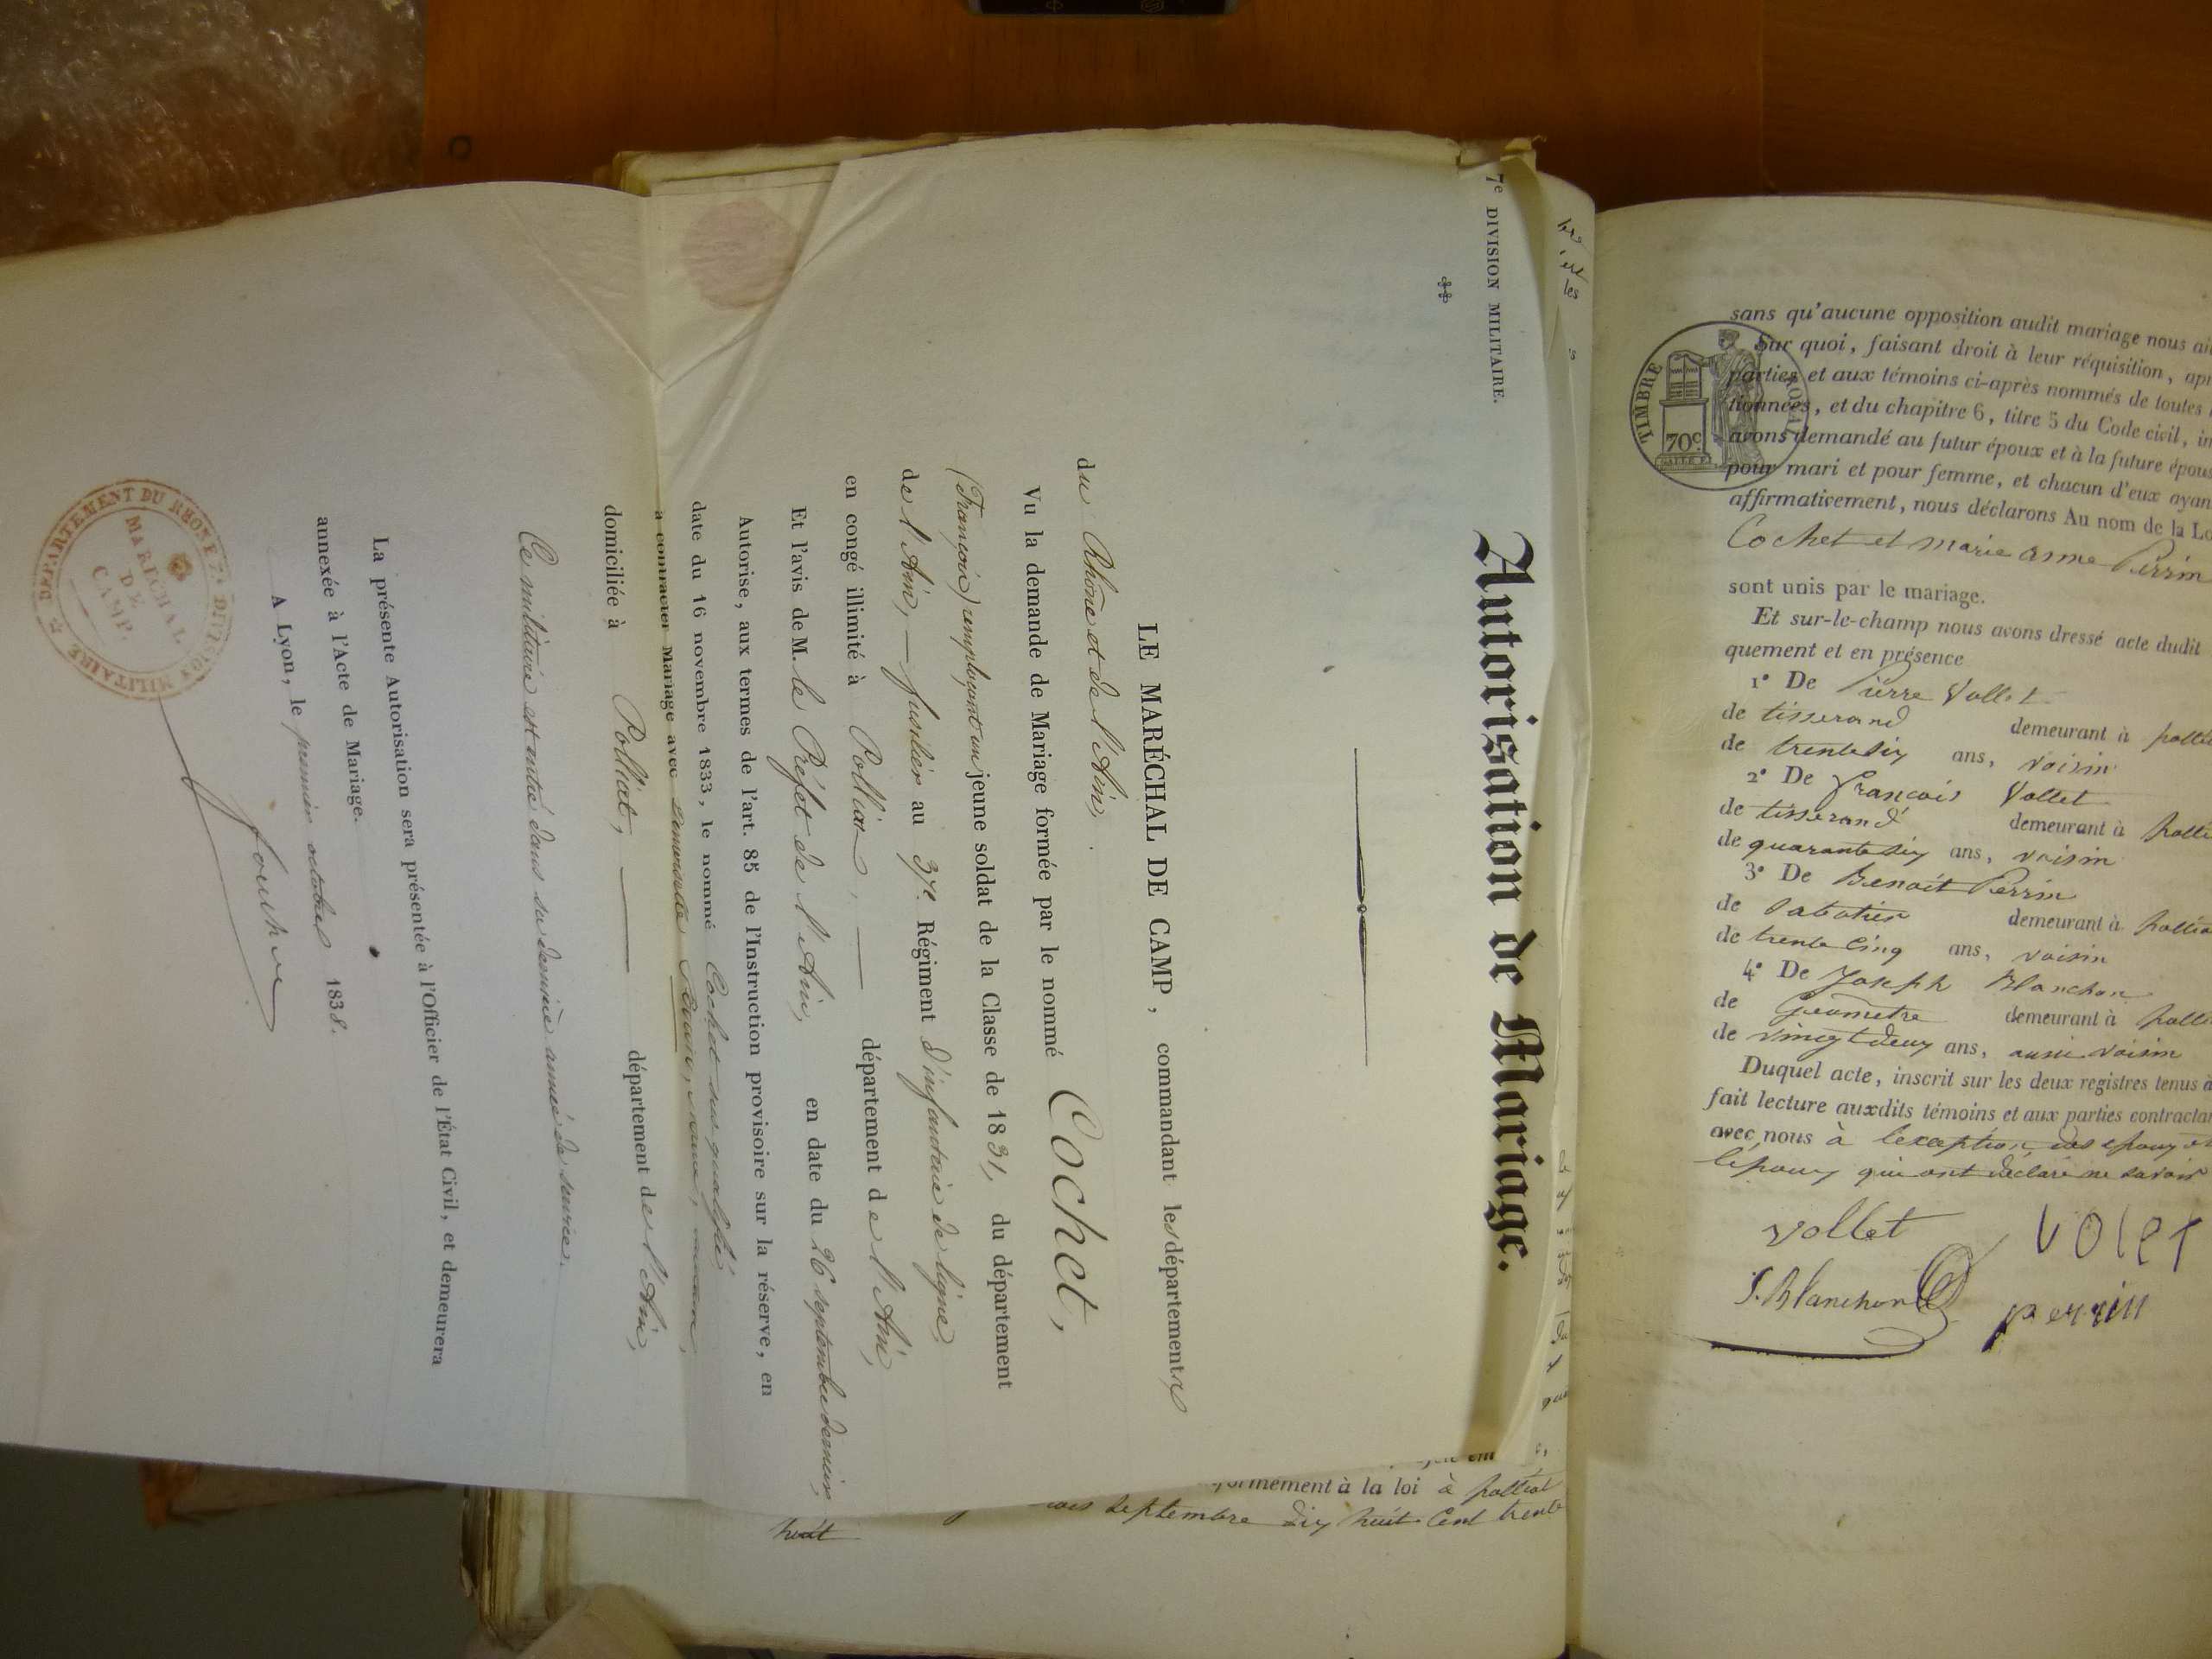 7e DIVISION MILITAIRE.
Autorisation de Mariage.
LE MARÉCHAL DE CAMP, commandant les départements
du Rhône et de l'Ain,
Vu la demande de Mariage formée par le nommé Cochet,
(François) remplaçant un jeune soldat de la Classe de 1831, du département
de l'Ain, — fusilier au 37e. Régiment d'infanterie de ligne,
en congé illimité à Polliat, — département de l'Ain,
Et l'avis de M. le Préfet de l'Ain, en date du 26 septembre dernier,
Autorise, aux termes de l'art. 85 de l'Instruction provisoire sur la réserve, en
date du 16 novembre 1833, le nommé Cochet sus qualifié
a contracter Mariage avec
domiciliée à Polliat, — département de l'Ain,
Ce militaire est entré dans sa dernière année de service.
La présente Autorisation sera présentée à l'Officier de l'État Civil, et demeurera
annexée à l'Acte de Mariage.
A Lyon, le premier octobre 1838.
DÉPARTEMENT DU RHONE 7e DIVISION MILITAIRE
MARÉCHAL
DE
CAMP.
formément à la loi à polliat
septembre dix huit cent trente
huit
TIMBRE ROYAL
70c
sans qu'aucune opposition audit mariage nous ait
Sur quoi, faisant droit à leur réquisition, apr
parties et aux témoins ci-après nommés de toutes
tionnées, et du chapitre 6, titre 5 du Code civil, in
avons demandé au futur époux et à la future épous
pour mari et pour femme, et chacun d'eux ayan
affirmativement, nous déclarons Au nom de la Lo
Cochet et marie anne Perrin
sont unis par le mariage.
Et sur-le-champ nous avons dressé acte dudit
quement et en présence
1° De Pierre Vollet
de tisserand demeurant à polli
de trente six ans, voisin
2° De François Vollet
de tisserand demeurant à polli
de quarante six ans, voisin
3° De Benoit Perrin
de Sabotier demeurant à pollia
de trente cinq ans, voisin
4° De Joseph Blanchon
de Géometre demeurant à polli
de vingt deux ans, aussi voisin
Duquel acte, inscrit sur les deux registres tenus à
fait lecture auxdits témoins et aux parties contractan
avec nous à lexception des epoux et
lépoux qui ont déclaré ne savoir
vollet VOLET
J. Blanchon perrin